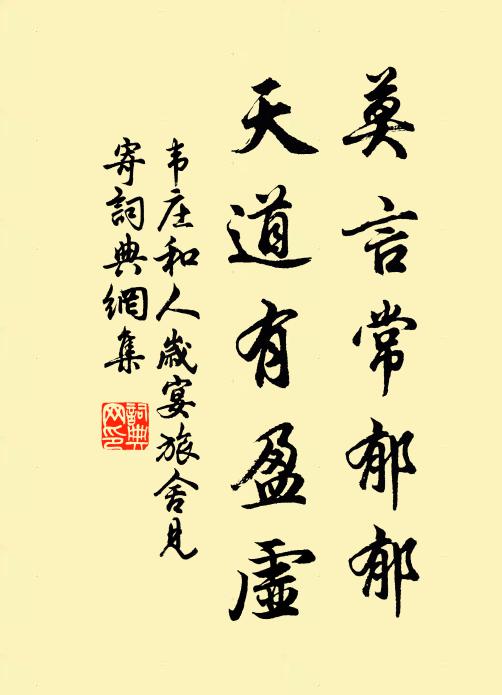 莫言常郁郁
天道有盈虚
韦庄和人岁宴旅舍见
寄詞典網集
詞典
网印